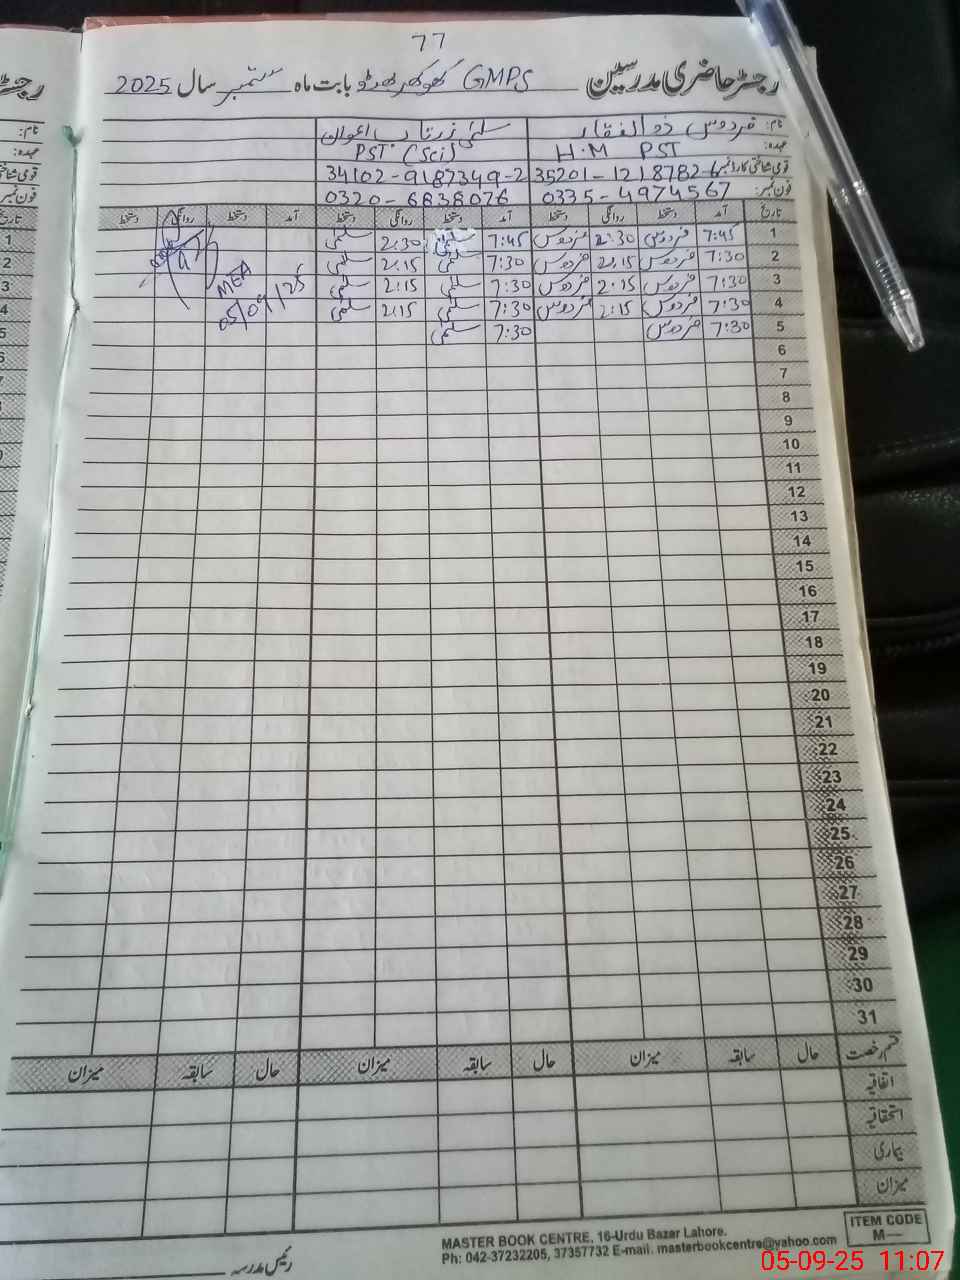 77
رجسٹر حاضری مدرسین GMPS کھوکھر بھدڻو بابت ماہ ستمبر سال 2025
نام: فردوس ذوالفقار سلمیٰ زرتاب اعوان
عہدہ: H.M PST PST (Sci)
قومی شناختی کارڈ نمبر: 35201-1218782-6 34102-9187349-2
فون نمبر: 0335-4974567 0320-6838076
تاریخ آمد دستخط روانگی دستخط آمد دستخط روانگی دستخط آمد دستخط روانگی دستخط
1 7:45 فردوس 2:30 فردوس 7:45 سلمیٰ 2:30 سلمیٰ
2 7:30 فردوس 2:15 فردوس 7:30 سلمیٰ 2:15 سلمیٰ
3 7:30 فردوس 2:15 فردوس 7:30 سلمیٰ 2:15 سلمیٰ MEA
4 7:30 فردوس 2:15 فردوس 7:30 سلمیٰ 2:15 سلمیٰ 05/09/25
5 7:30 فردوس 7:30 سلمیٰ
6
7
8
9
10
11
12
13
14
15
16
17
18
19
20
21
22
23
24
25
26
27
28
29
30
31
قسم رخصت حال سابقہ میزان حال سابقہ میزان حال سابقہ میزان
اتفاقیہ
استحقاقیہ
بیماری
میزان
رئیس مدرسہ
MASTER BOOK CENTRE, 16-Urdu Bazar Lahore.
Ph: 042-37232205, 37357732 E-mail. masterbookcentre@yahoo.com
ITEM CODE
M—
05-09-25 11:07